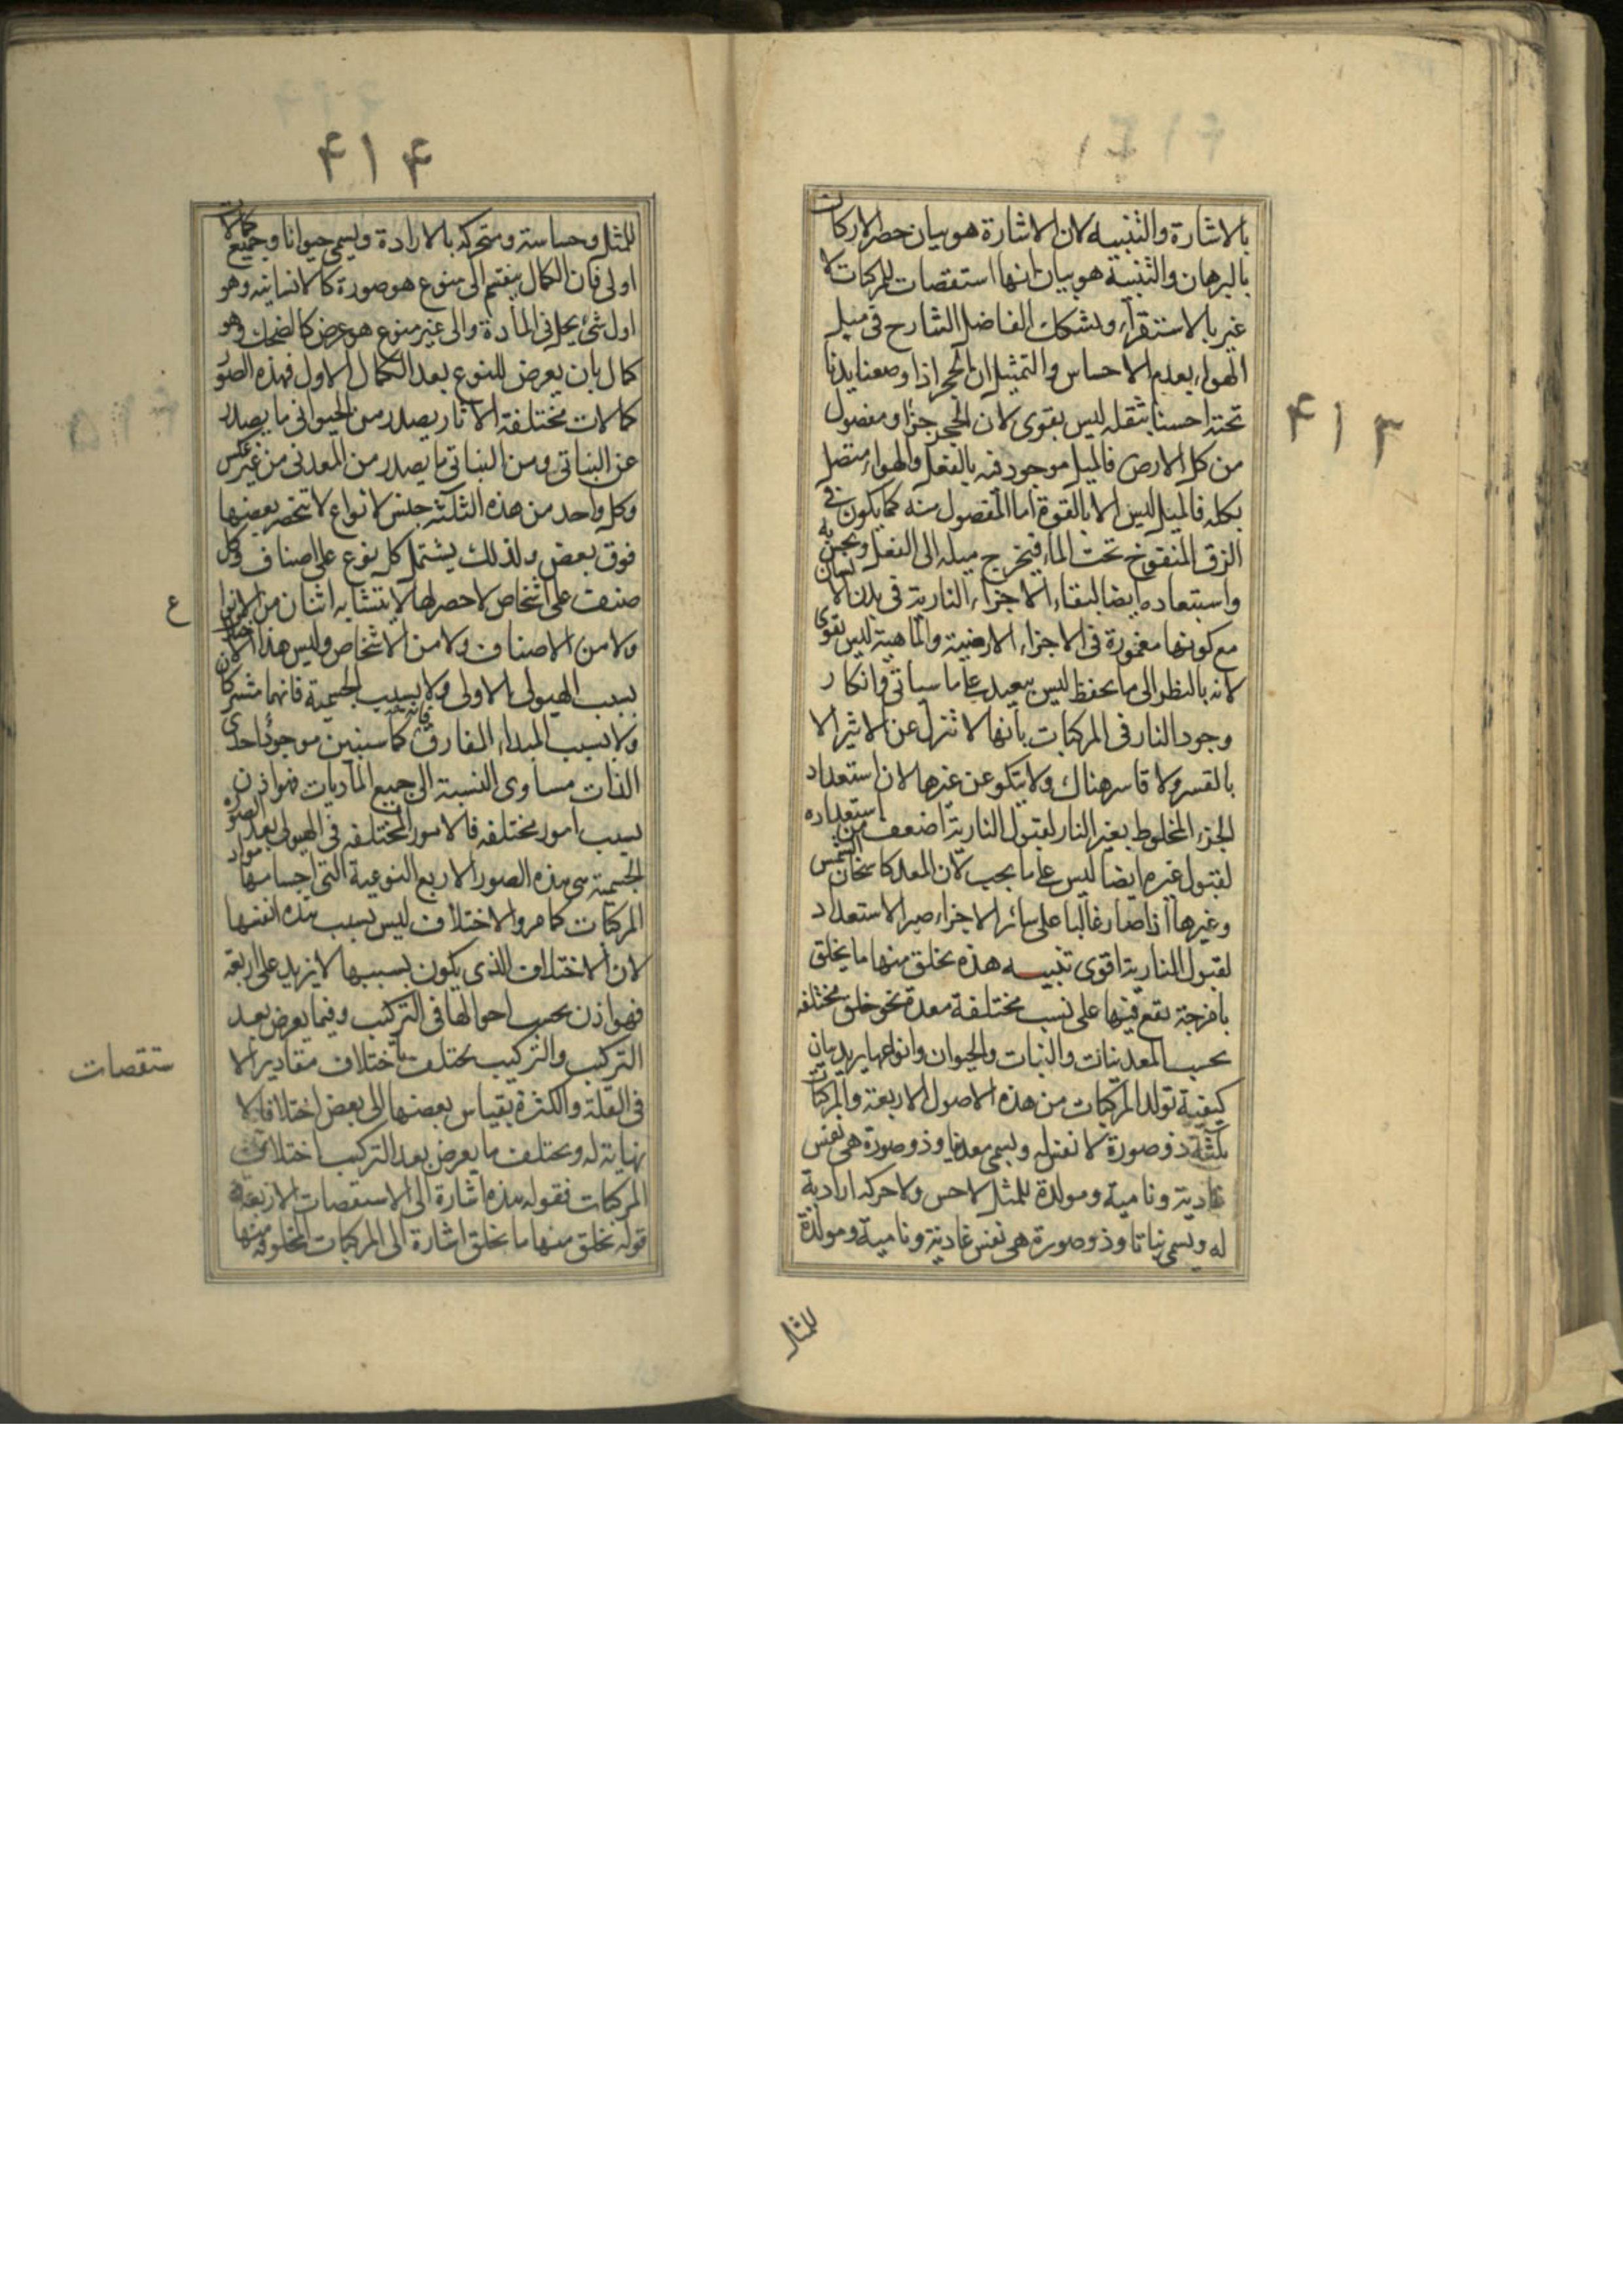 ۴۱۳
بالاشارة والتنبيه لان الاشارة هو بيان حصر الاركان
بالبرهان والتنبيه هو بيان انها استقصات للمركبات لا
غير بالاستقراء ويشكك الفاضل الشارح في ميل
الهواء بعدم الاحساس والتمثيل ان الحجر اذا وضعنا يدنا
تحته احسنا بثقله ليس بقوى لان الحجر جزء مفصول
من كل الارض فالميل موجود فيه بالفعل والهواء متصل
بكله فالميل ليس الا بالقوة اما المفصول منه كما يكون في
الزق المنفوخ تحت الماء فيخرج ميله الى الفعل ويحس به
واستبعاده ايضا لبقاء الاجزاء النارية في بدن الانسان
مع كونها مغمورة في الاجزاء الارضية والمائية ليس بقوى
لانه بالنظر الى ما يحفظ ليس ببعيد على ما سياتى وانكار
وجود النار في المركبات بانها لا تنزل عن الاثير الا
بالقسر ولا قاسر هناك ولا يتكو عن غيرها لان استعداد
الجزء المخلوط بغير النار لقبول النارية اضعف من استعداده
لقبول غيره ايضا ليس على ما يجب لان المعد كاسخان الشمس
وغيرها اذا صار غالبا على سائر الاجزاء صير الاستعداد
لقبول النارية اقوى تنبيه هذه يخلق منها ما يخلق
بامزجة يقع فيها على نسب مختلفة معدة نحو خلق مختلفه
بحسب المعدنيات والنبات والحيوان وانواعها يريد بيان
كيفية تولد المركبات من هذه الاصول الاربعة والمركبات
ثلثة ذو صورة لا نفس له ويسمى معدنيا وذو صورة هى نفس
غاذية ونامية ومولدة للمثل لا حس ولا حركه ارادية
له ويسمى نباتا وذو صورة هى نفس غاذية ونامية ومولدة
للمثل
۴۱۴
للمثل وحساسة ومتحركه بالارادة ويسمى حيوانا وجميع كمالات
اولى فان الكمال ينقسم الى منوع هو صورة كالانسانيه وهو
اول شئ يحل في المادة والى غير منوع هو عرض كالضحك وهو
كمال بان يعرض للنوع بعد الكمال الاول فهذه الصور
كمالات مختلفة الاثار يصدر من الحيوانى ما يصدر
عن النباتى ومن النباتى ما يصدر من المعدنى من غير عكس
وكل واحد من هذه الثلثة جنس لانواع لا تنحصر بعضها
فوق بعض ولذلك يشتمل كل نوع على اصناف وكل
صنف على اشخاص لا حصر لها لا يتشابه اثنان من الانواع
ولا من الاصناف ولا من الاشخاص وليس هذا الاختلاف
بسبب الهيولى الاولى ولا بسبب الجسمية فانهما مشتركان
ولا بسبب المبداء المفارق فانه كما سنبين موجود احدى
الذات مساوى النسبة الى جميع الماديات فهو اذن
بسبب امور مختلفه فالامور المختلفه في الهيولى بعد الصورة
الجسمية هى هذه الصور الاربع النوعية التى اجسامها مواد
المركبات كما مر والاختلاف ليس بسبب هذه انفسها
لان الاختلاف الذى يكون بسببها لا يزيد على اربعة
فهو اذن بحسب احوالها في التركيب وفيما يعرض بعد
التركيب والتركيب يختلف باختلاف مقادير الا
ستقصات
في القلة والكثرة بقياس بعضها الى بعض اختلافا لا
نهاية له ويختلف ما يعرض بعد التركيب اختلاف
المركبات فقوله هذه اشارة الى الاستقصات الاربعة
قوله نخلق منها ما نخلق اشارة الى المركبات المخلوقه منها
ع